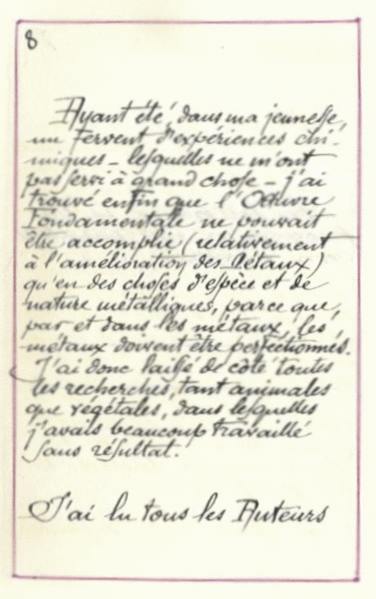 8
Ayant été, dans ma jeunesse,
un fervent d'expériences chi-
miques - lesquelles ne m'ont
pas servi à grand chose - j'ai
trouvé enfin que l'Oeuvre
Fondamentale ne pouvait
être accomplie (relativement
à l'amélioration des Métaux)
qu'en des choses d'espèce et de
nature métalliques, parce que,
par et dans les métaux, les
métaux doivent être perfectionnés.
J'ai donc laissé de côté toutes
les recherches, tant animales
que végétales, dans lesquelles
j'avais beaucoup travaillé
sans résultat.
J'ai lu tous les Auteurs